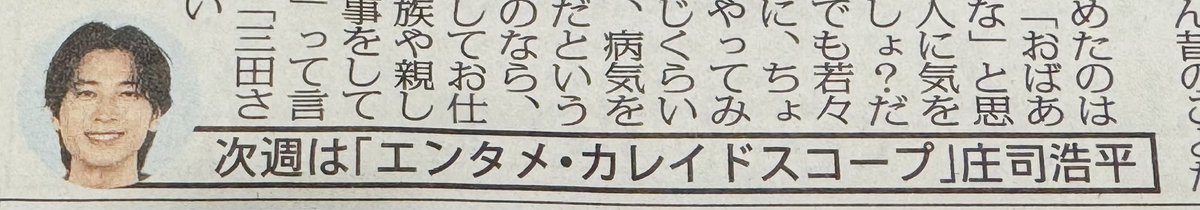 ん昔のこ
めたのは
「おばあ
な」と思
人に気を
しょ？だ
でも若々
に、ちょ
やってみ
じくらい
、病気を
だという
のなら、
してお仕
族や親し
事をして
」って言
「三田さ
い
次週は「エンタメ・カレイドスコープ」庄司浩平